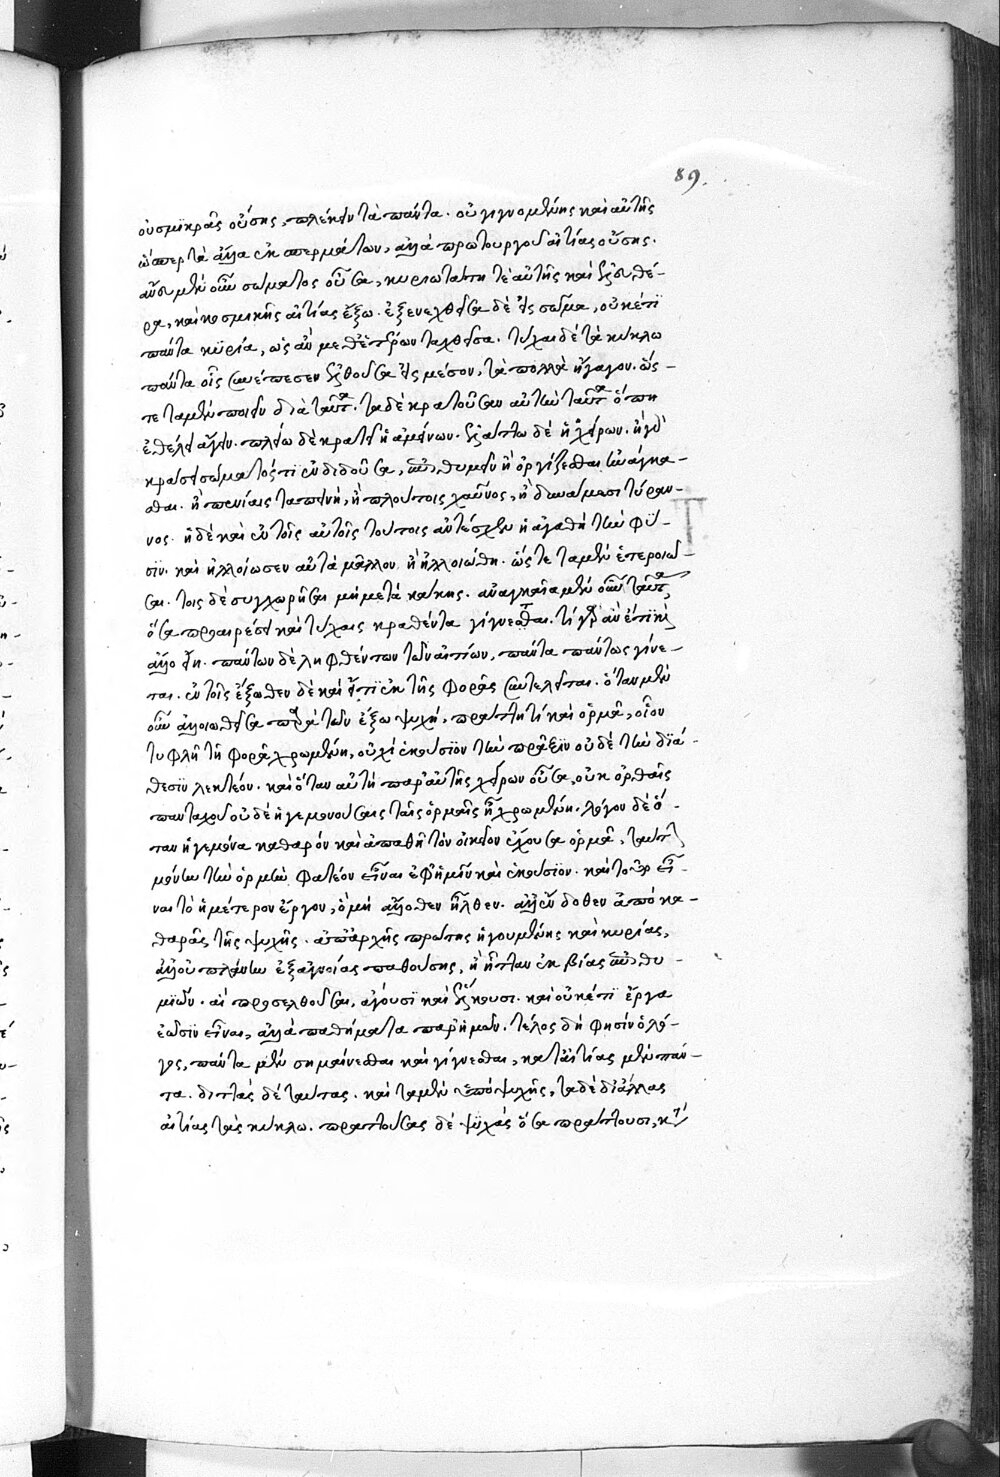 89.
οὐ σμικρᾶς οὔσης, πλέκειν τὰ πάντα. οὐ γιγνομένης καὶ αὐτῆς
ὥσπερ τὰ ἄλλα ἐκ σπερμάτων, ἀλλὰ πρωτουργοῦ αἰτίας οὔσης.
ἄνευ μὲν οὖν σώματος οὖσα, κυριωτάτη τε αὑτῆς καὶ ἐλευθέ-
ρα, καὶ κοσμικῆς αἰτίας ἔξω. ἐξενεχθεῖσα δὲ εἰς σῶμα, οὐκέτι
πάντα κυρία, ὡς ἂν μεθ' ἑτέρων ταχθεῖσα. τύχαι δὲ τὰ κύκλω
πάντα οἷς συνέπεσεν ἐλθοῦσα εἰς μέσον, τὰ πολλὰ ἤγαγον. ὥσ-
τε τὰ μὲν ποιεῖν διὰ ταῦτα. τὰ δὲ κρατοῦσαν αὐτὴν ταῦτα ὅπη
ἐθέλει ἄγειν. πλείω δὲ κρατεῖ ἡ ἀμείνων. ἐλάττω δὲ ἡ χείρων. ἡ γὰρ
κράσει σώματός τι ἐνδιδοῦσα, ἐπιθυμεῖν ἢ ὀργίζεσθαι ἠνάγκα-
σθαι. ἢ πενίαις ταπεινὴ, ἢ πλούτοις χαῦνος, ἢ δυνάμεσι τύραν-
νος. ἡ δὲ καὶ ἐν τοῖς αὐτοῖς τούτοις ἀντέσχεν ἡ ἀγαθὴ τὴν φύ-
σιν. καὶ ἠλλοίωσεν αὐτὰ μᾶλλον ἢ ἠλλοιώθη. ὥστε τὰ μὲν ἑτεροιῶ-
σαι. τοῖς δὲ συγχωρῆσαι μὴ μετὰ κάκης. ἀναγκαῖα μὲν οὖν ταῦτα
ὅσα προαιρέσει καὶ τύχαις κραθέντα γίγνεσθαι. τί γὰρ ἂν ἔτι καὶ
ἄλλο εἴη. πάντων δὲ ληφθέντων τῶν αἰτίων, πάντα πάντως γίνε-
ται. ἐν τοῖς ἔξωθεν δὲ καὶ εἴ τι ἐκ τῆς φορᾶς συντελεῖται. ὅταν μὲν
οὖν ἀλλοιωθεῖσα παρὰ τῶν ἔξω ψυχὴ, πράττη τι καὶ ὁρμᾶ, οἷον
τυφλῆ τῆ φορᾶ χρωμένη, οὐχὶ ἑκούσιον τὴν πρᾶξιν οὐδὲ τὴν διά-
θεσιν λεκτέον. καὶ ὅταν αὐτὴ παρ' αὑτῆς χείρων οὖσα, οὐκ ὀρθαῖς
πανταχοῦ οὐδὲ ἡγεμονούσαις ταῖς ὁρμαῖς ᾖ χρωμένη. λόγον δὲ ὅ-
ταν ἡγεμόνα καθαρὸν καὶ ἀπαθῆ τὸν οἰκεῖον ἔχουσα ὁρμᾶ, ταύτην
μόνην τὴν ὁρμὴν φατέον εἶναι ἐφ' ἡμῖν καὶ ἑκούσιον. καὶ τοῦτο εἶ-
ναι τὸ ἡμέτερον ἔργον, ὃ μὴ ἄλλοθεν ἦλθεν. ἀλλ' ἔνδοθεν ἀπὸ κα-
θαρᾶς τῆς ψυχῆς. ἀπ' ἀρχῆς πρώτης ἡγουμένης καὶ κυρίας,
ἀλλ' οὐ πλάνην ἐξ ἀγνοίας παθούσης, ἢ ἧτταν ἐκ βίας ἐπιθυ-
μιῶν. αἳ προσελθοῦσαι, ἄγουσι καὶ ἕλκουσι. καὶ οὐκέτι ἔργα
ἐῶσιν εἶναι, ἀλλὰ παθήματα παρ' ἡμῶν. τέλος δή φησὶν ὁ λό-
γος, πάντα μὲν σημαίνεσθαι καὶ γίγνεσθαι, κατ' αἰτίας μὲν πάν-
τα. διττὰς δὲ ταύτας. καὶ τὰ μὲν ὑπὸ ψυχῆς, τὰ δὲ δι' ἄλλας
αἰτίας τὰς κύκλω. πραττούσας δὲ ψυχὰς ὅσα πράττουσι, κατὰ